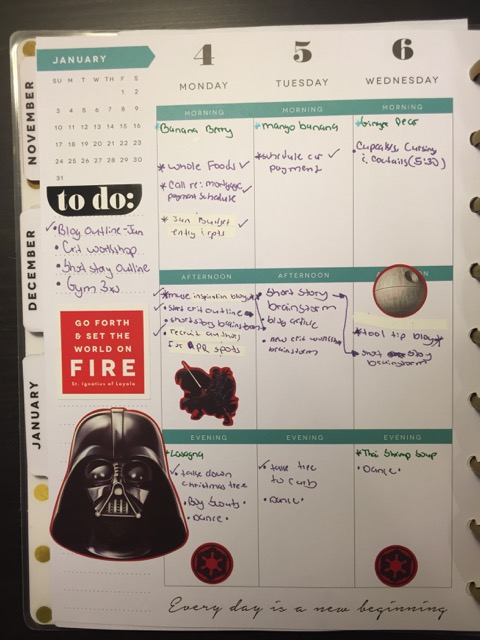 NOVEMBER
DECEMBER
JANUARY
JANUARY
SU M T W TH F S
1 2
3 4 5 6 7 8 9
10 11 12 13 14 15 16
17 18 19 20 21 22 23
24 25 26 27 28 29 30
31
to do:
✓•Blog outline-Jan
• Crit workshop
• Short story outline
• Gym 3x
GO FORTH
& SET THE
WORLD ON
FIRE
St. Ignatius of Loyola
4
MONDAY
MORNING
*Banana Berry
*Whole Foods ✓
*Call re: mortgage ✓
payment schedule
*Jan Budget ✓
entry & rpts
AFTERNOON
*muse inspiration blog
• start crit outline
• short story brainstorm
• recruit authors
for PR spots
EVENING
*Lasagna
✓ take down
christmas tree
• Boy Scouts •
• Dance •
5
TUESDAY
MORNING
*mango banana
*schedule car ✓
payment
AFTERNOON
• short story
brainstorm
• blog article
• new crit
brainstorm
EVENING
✓ take tree
to curb
• Dance •
6
WEDNESDAY
MORNING
*Ginger Pear
• Cupcakes, Cursing
& Cocktails (5:30)
*tool tip blog*
short story
brainstorm
EVENING
*Thai Shrimp Soup
• Dance •
Every day is a new beginning